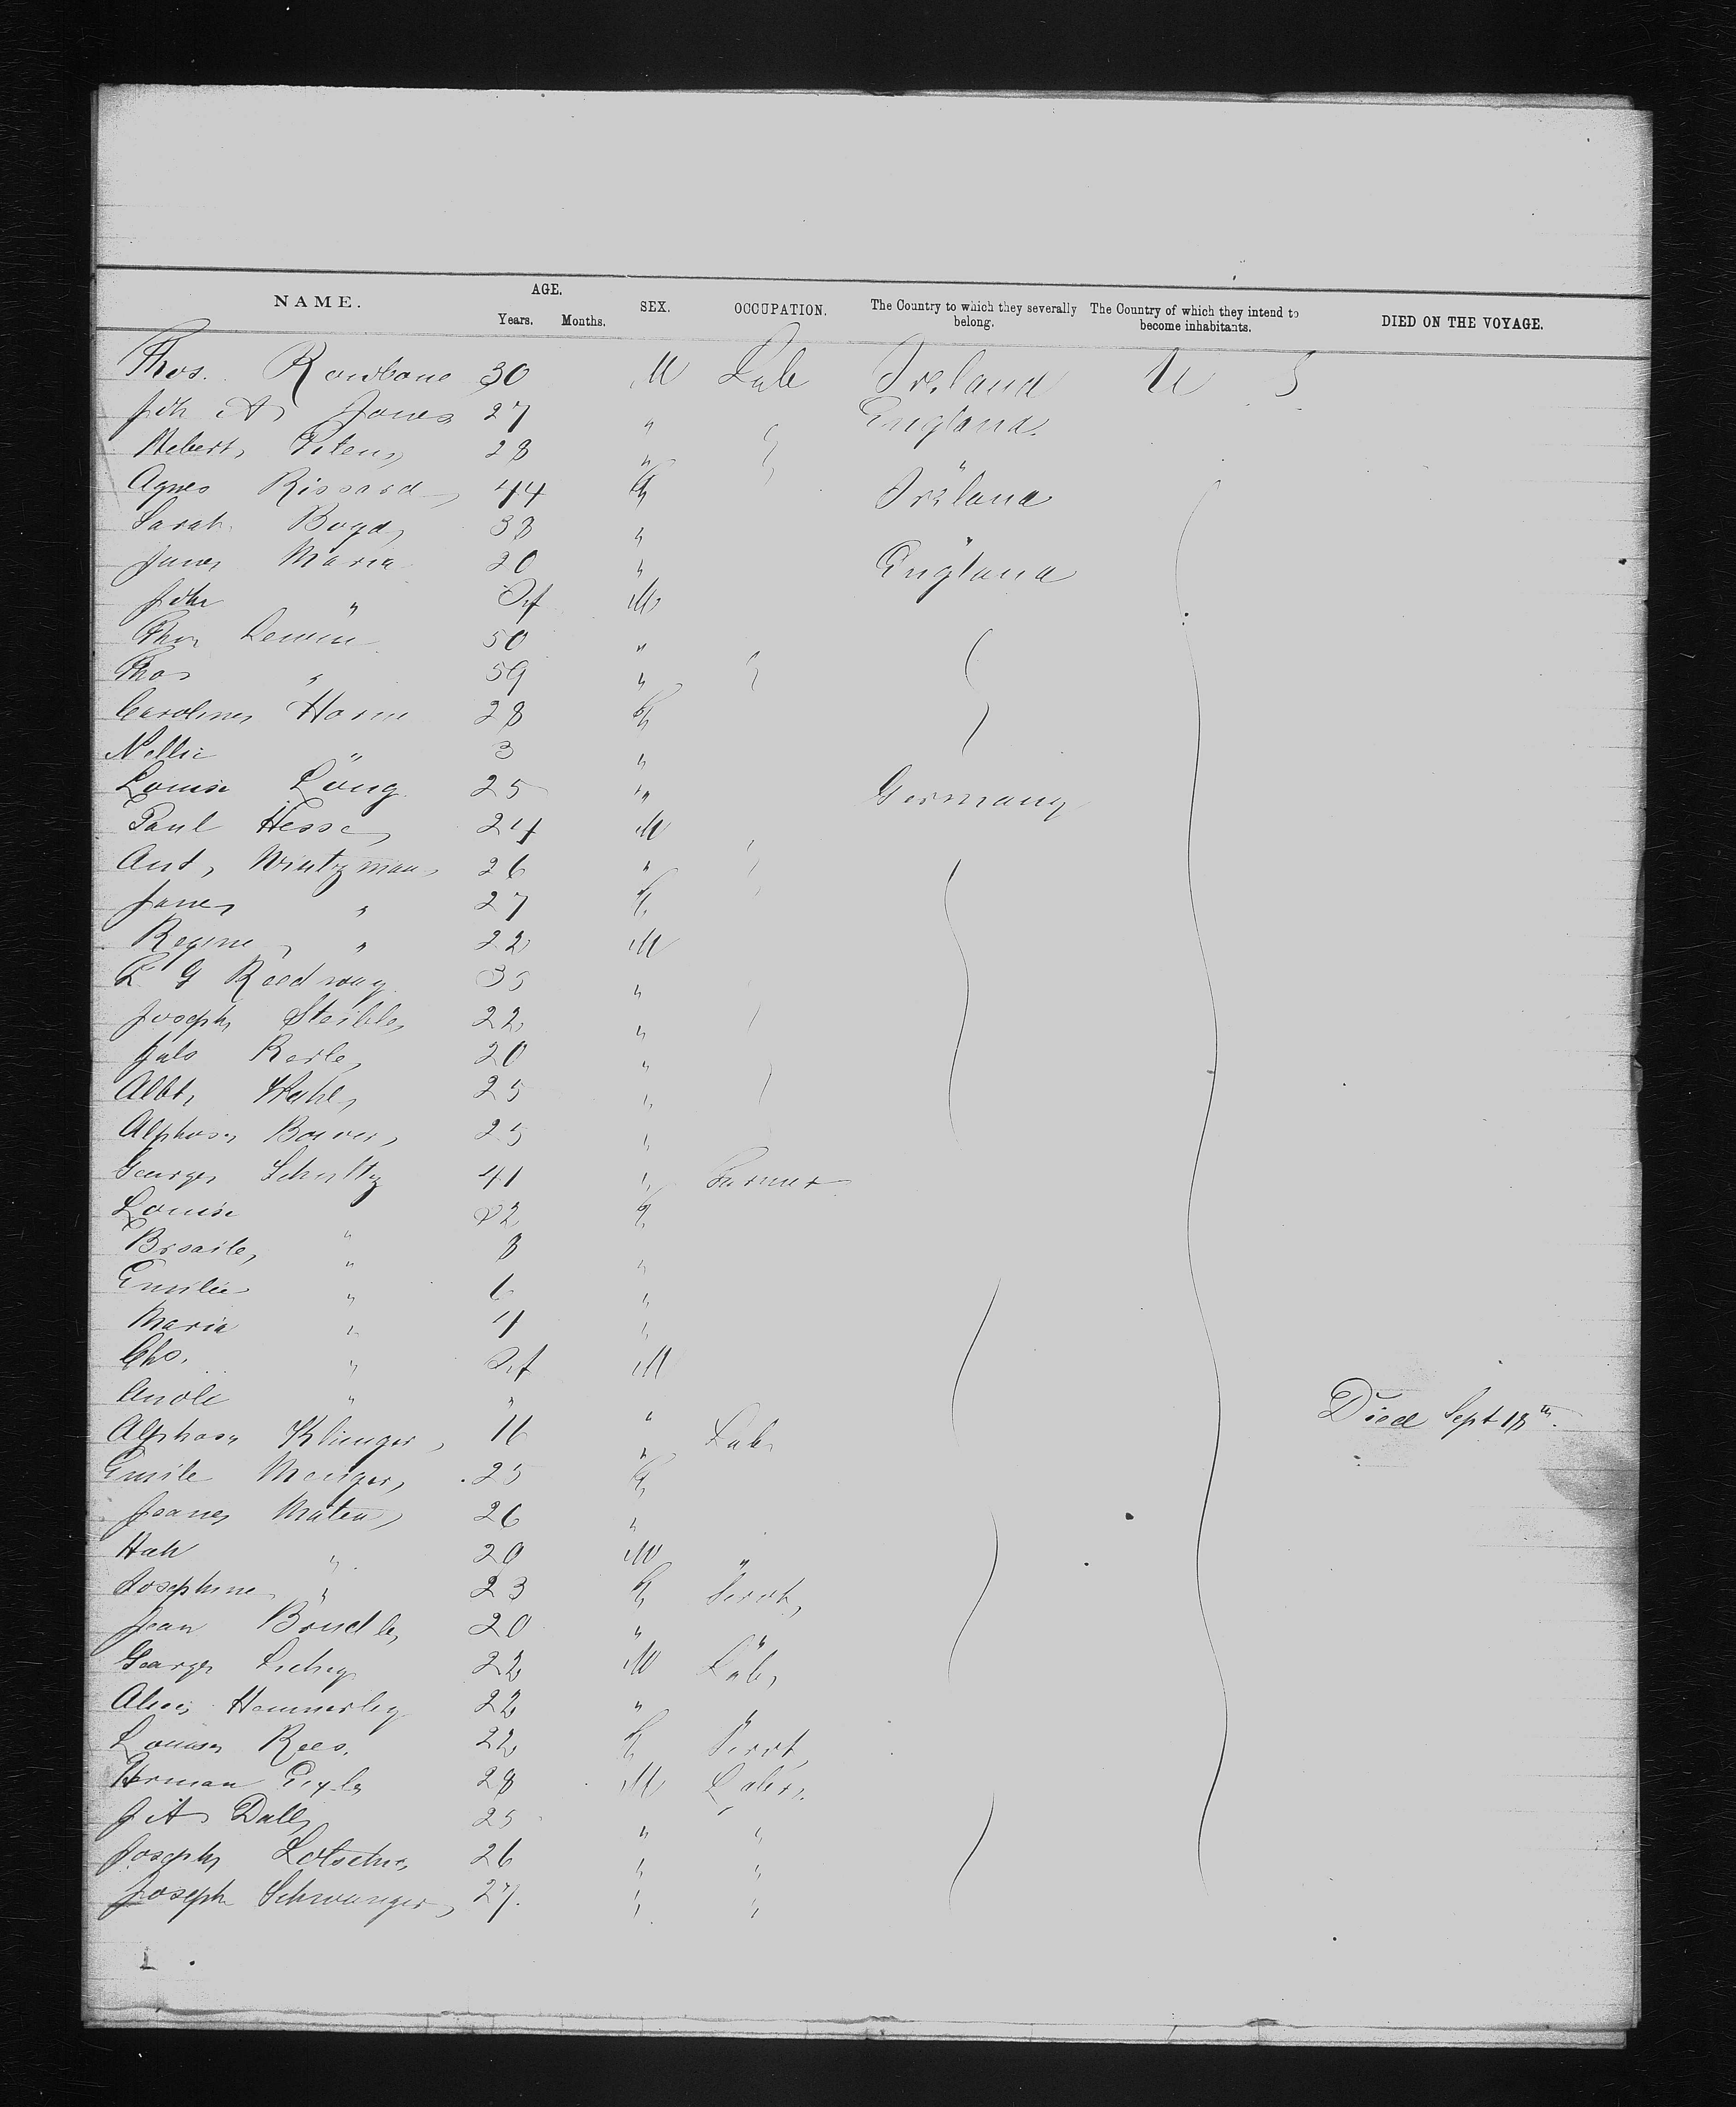 NAME. AGE. Years. Months. SEX. OCCUPATION. The Country to which they severally belong. The Country of which they intend to become inhabitants. DIED ON THE VOYAGE.
Thos. Rowbone 30 M Lab Ireland U S
Jon A Jones 27 " England
Hebert Peters 28 " "
Agnes Rissard 44 F Ireland
Sarah Boyd 38 " "
Jane Maria 20 " England
John " Inf M
Thos 50 "
Thos " 59 "
Caroline Horne 28 F
Nellie " 3 "
Louise Long 25 " Germany
Paul Hesse 24 M
Ant Wintzman 26 "
Jane " 27 F
Regine " 22 M
L G Reedway 35 "
Joseph Steible 22 "
Juls Kerle 20 "
Albt 25 "
Alphose Bower 25 "
George Schultz 41 " Farmer
Louise " 32 F
" 8 "
Emilie " 6 "
Maria " 4 "
Chs. " Inf M
" " " Died Sept 18th.
Alphose Klinger 16 " Lab
Emile Menger 25 F
Jeane Maten 26 "
" 20 M "
Josephine " 23 F Servt
Jean Brudle 20 " "
George 22 M Lab
Alois Hemmerley 22 " "
Louise Rees. 22 F Servt
Herman 28 M Labr.
J A Dall 25 " "
Joseph 26 " "
Joseph Schwanger 27. " "